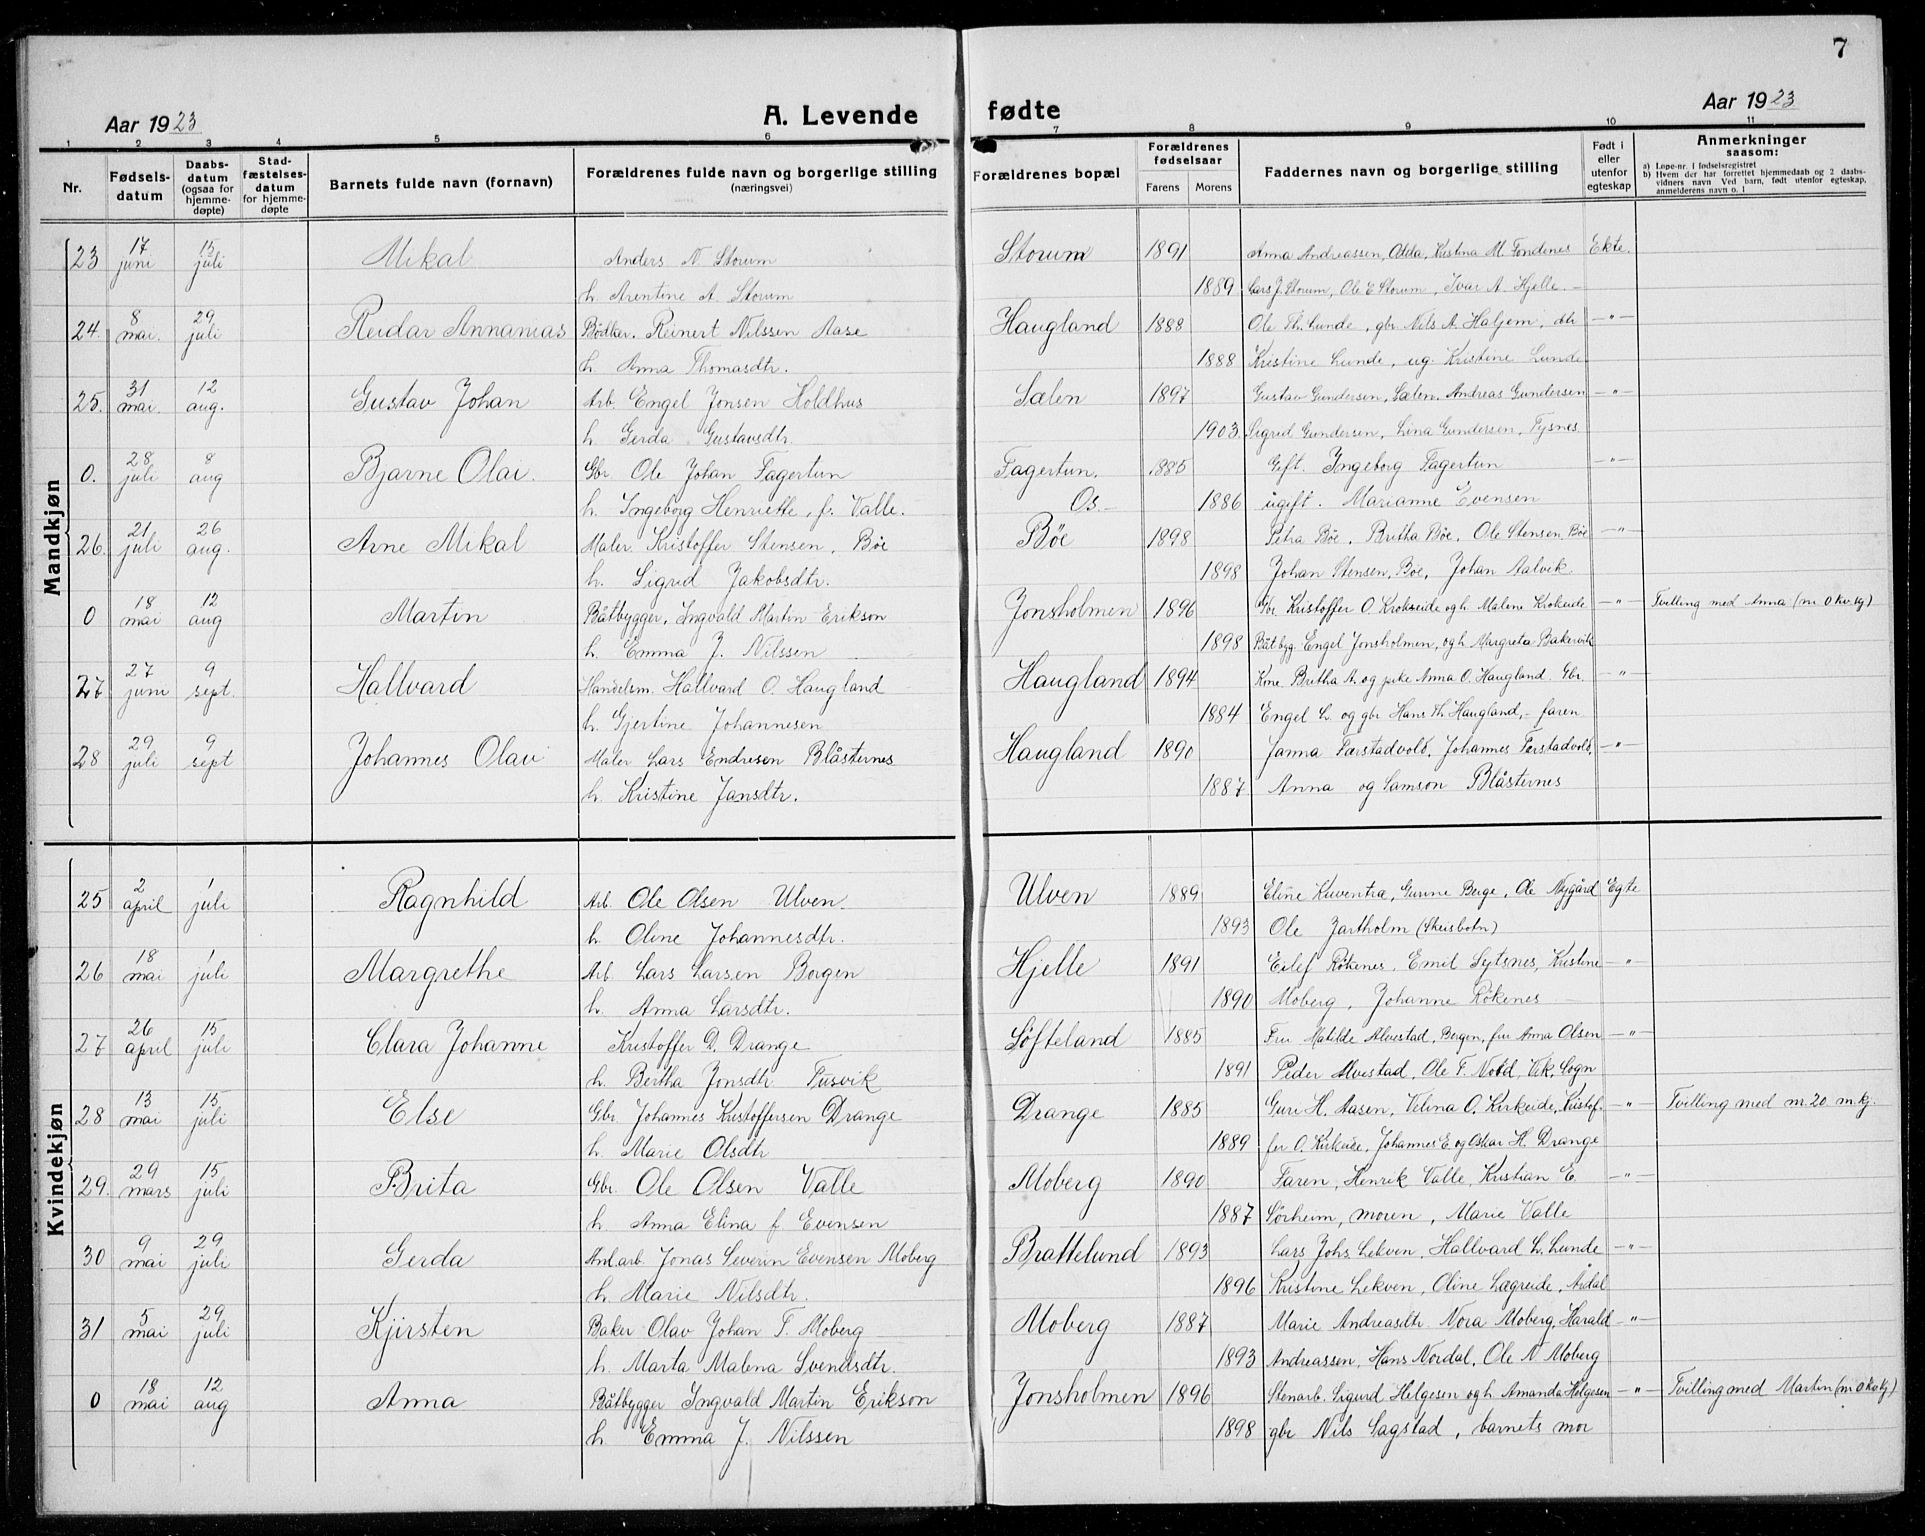 7
Aar 1923 A. Levende fødte Aar 1923
1 2 3 4 5 6 7 8 9 10 11
Nr. Fødsels-datum Daabs-datum (ogsaa for hjemme-døpte) Stad-fæstelses-datum for hjemme-døpte Barnets fulde navn (fornavn) Forældrenes fulde navn og borgerlige stilling (næringsvei) Forældrenes bopæl Forældrenes fødselsaar Farens Morens Faddernes navn og borgerlige stilling Født i eller utenfor egteskap Anmerkninger saasom:
a) Løpe-nr. i fødselsregistret
b) Hvem der har forrettet hjemmedaab og 2 daabs-vidners navn Ved barn, født utenfor egteskap, anmelderens navn o. l
Mandkjøn
23 17 juni 15 juli Mikal Anders N. Storum Storum 1891 Anna Andreassen, Odda, Kristina M. Tondenes Ekte.
h. Arentine A. Storum 1889 Lars J. Storum, Ole E Storum, Ivar A. Hjelle. -
24. 8 mai. 29 juli Reidar Annanias Bødker. Reinert Nilssen Aase Haugland 1888 Ole Th. Lunde, gbr. Nils A. Haljem, dtr - " -
h. Anna Thomasdtr. 1888 Kristine Lunde, ug. Kristene Lunde
25. 31 mai. 12 aug. Gustav Johan Arb. Engel Jonsen Holdhus Sælen 1897 Gustav Gundersen, Sælen. Andreas Gundersen - " -
h. Gerda Gustavsdtr. 1903 Sigrid Gundersen, Lina Gundersen, Tysnes.
0. 28 juli 8 aug Bjarne Olai. Gbr. Ole Johan Fagertun Fagertun. 1885 Gift. Ingeborg Fagertun - " -
h. Ingeborg Henriette, f. Valle. Os. 1886 ugift. Marianne Evensen
26. 21 juli 26 aug. Arne Mikal Maler Kristoffer Stensen, Bøe Bøe 1898 Petra Bøe, Britha Bøe, Ole Stensen Bøe - " -
h. Sigrid Jakobsdtr. 1898 Johan Stensen, Bøe, Johan Aalvik.
0 18 mai 12 aug Martin Båtbygger, Ingvald Martin Erikson Jonsholmen 1896 Gbr. Kristoffer O. Krokeide og h. Malene Krokeide - " - Tvilling med Anna (nr 0 kv.kj)
h. Emma J. Nilssen 1898 Båtbyg. Engel Jonsholmen, og h. Margreta Bakervik
27 27 juni 9 sept. Hallvard Handelsm. Hallvard O. Haugland Haugland 1894 Kone Britha A. og pike Anna O. Haugland. Gbr. - " -
h. Gjertine Johannesen 1884 Engel L. og gbr Hans Th. Haugland, - faren
28 29 juli 9 sept Johannes Olav Maler Lars Endresen Blåsternes Haugland 1890 Janna Færstadvold, Johannes Færstadvold, - " -
h. Kristine Jansdtr. 1887 Anna og Samson Blåsternes
Kvindekjøn
25 2 april 1 juli Ragnhild Arb. Ole Olsen Ulven. Ulven 1889 Eline Kuventra, Gunne Berge, Ole Nygård Egte
h. Oline Johannesdtr. 1893 Ole Jartholm (Skeisbotn)
26 18 mai 1 juli Margrethe Arb. Lars Larsen Borgen Hjelle 1891 Eilef Røkenes, Emil Lytsnes, Kristine - " -
h. Anna Larsdtr. 1890 Moberg, Johanne Røkenes
27 26 april 15 juli Clara Johanne Kristoffer D. Drange Søfteland 1885 Fru Matilde Alvestad, Bergen, fru Anna Olsen - " -
h. Bertha Jonsdtr Tusvik 1891 Peder Alvestad, Ole T. Notd, Vik, Sogn
28 13 mai 15 juli Else Gbr. Johannes Kristoffersen Drange Drange 1885 Guri H. Aasen, Velina O. Kirkeide, Kristof- - " - Tvilling med nr. 20 m.kj.
h. Marie Olsdtr 1889 fer O. Kirkeide, Johannes E. og Oskar H. Drange
29. 29 mars 15 juli Brita Gbr. Ole Olsen Valle Moberg 1890 Faren, Henrik Valle, Kristian E. - " -
h. Anna Elina f Evensen 1887 Sørheim, moren, Marie Valle
30 9 mai 29 juli Gerda Anl.arb. Jonas Severin Evensen Moberg Brattelund 1893 Lars Johs Lekven, Hallvard L. Lunde - " -
h. Marie Nilsdtr. 1896 Kristine Lekven, Oline Lægreide, Årdal
31 5 mai 29 juli Kjirsten Baker Olav Johan T. Moberg Moberg 1887 Marie Andreasdtr Nora Moberg, Harald - " -
h. Marta Malena Svendsdtr. 1893 Andreassen, Hans Nordal, Ole N Moberg
0 18 mai 12 aug Anna Båtbygger Ingvald Martin Erikson Jonsholmen 1896 Stenarb. Sigurd Helgesen og h. Amanda Helgesen - " - Tvilling med Martin (nr 0 kv.kj)
h. Emma J. Nilssen 1898 gbr Nils Sagstad, barnets mor